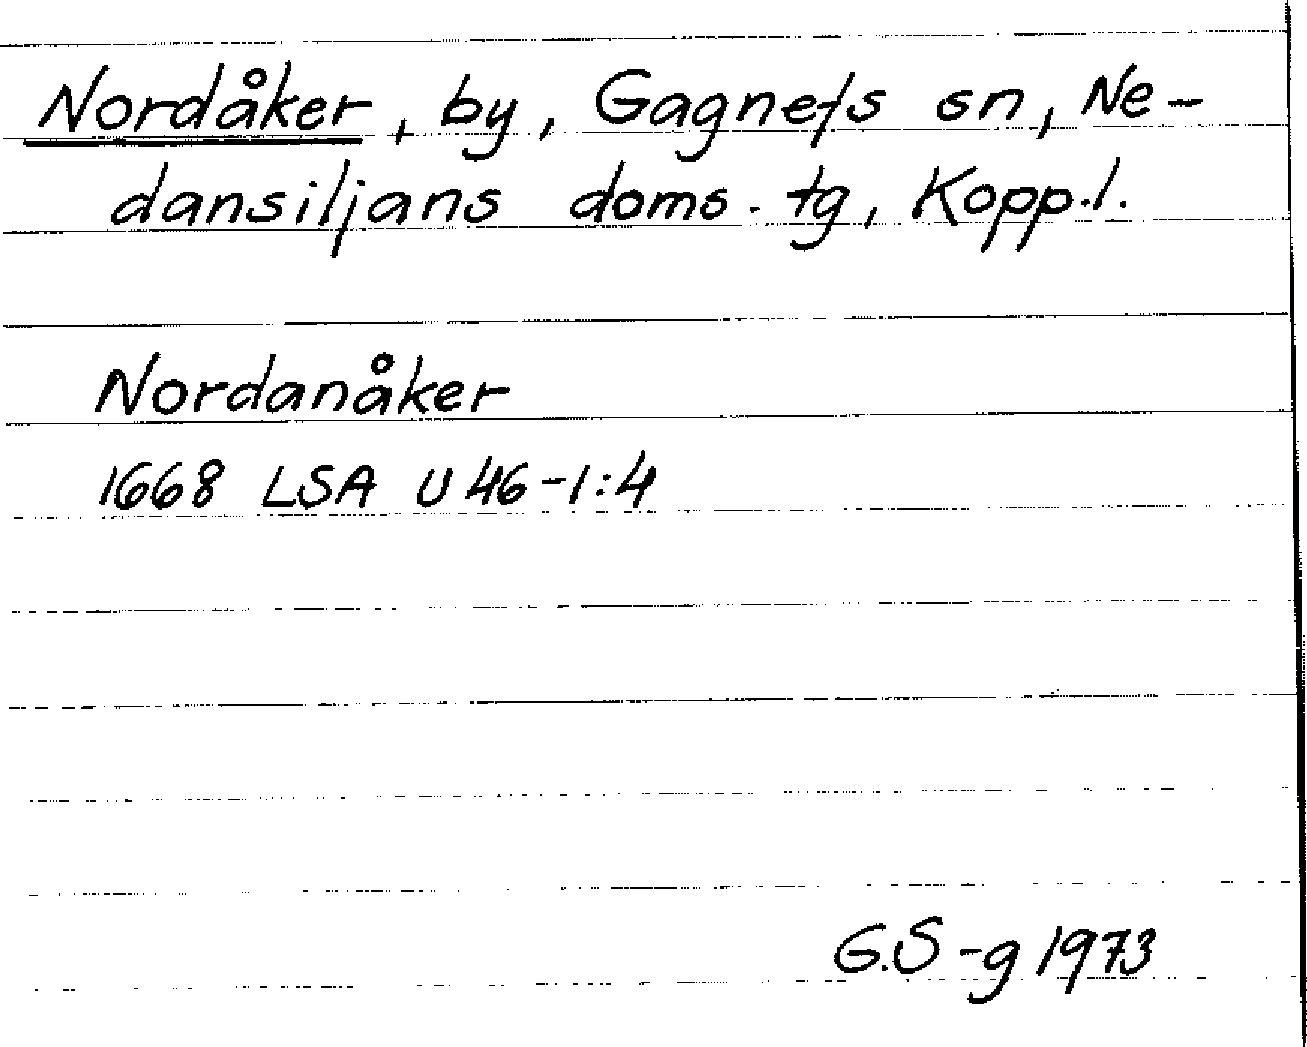 Nordåker, by, Gagnefs sn, Ne-
dansiljans doms. tg, Kopp.l.
Nordanåker
1668 LSA U 46-1:4
G.S-g 1973